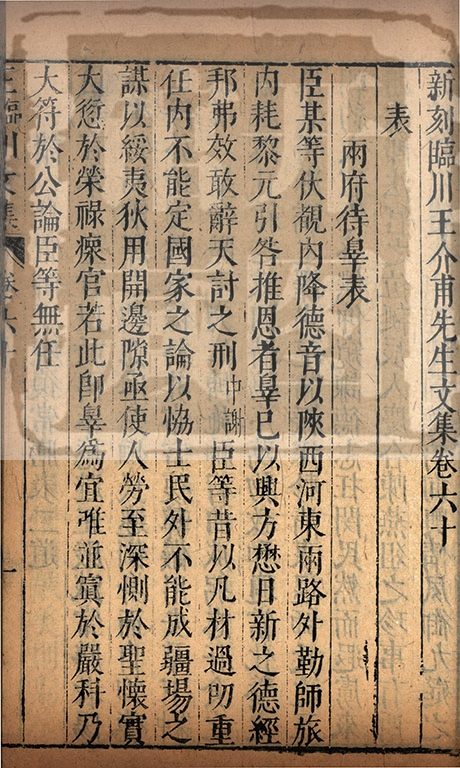 新刻臨川王介甫先生文集卷六十
表
兩府待辠表
臣某等伏覩內降德音以陝西河東兩路外勤師旅
內耗黎元引咎推恩者辠已以興方懋日新之德經
邦弗效敢辭天討之刑中謝臣等昔以凡材過叨重
任內不能定國家之論以恊士民外不能成疆場之
謀以綏夷狄用開邊隙亟使人勞至深惻於聖懷實
大愆於榮祿瘝官若此卽辠為宜唯並寘於嚴科乃
大符於公論臣等無任
王臨川文集 卷六十 一